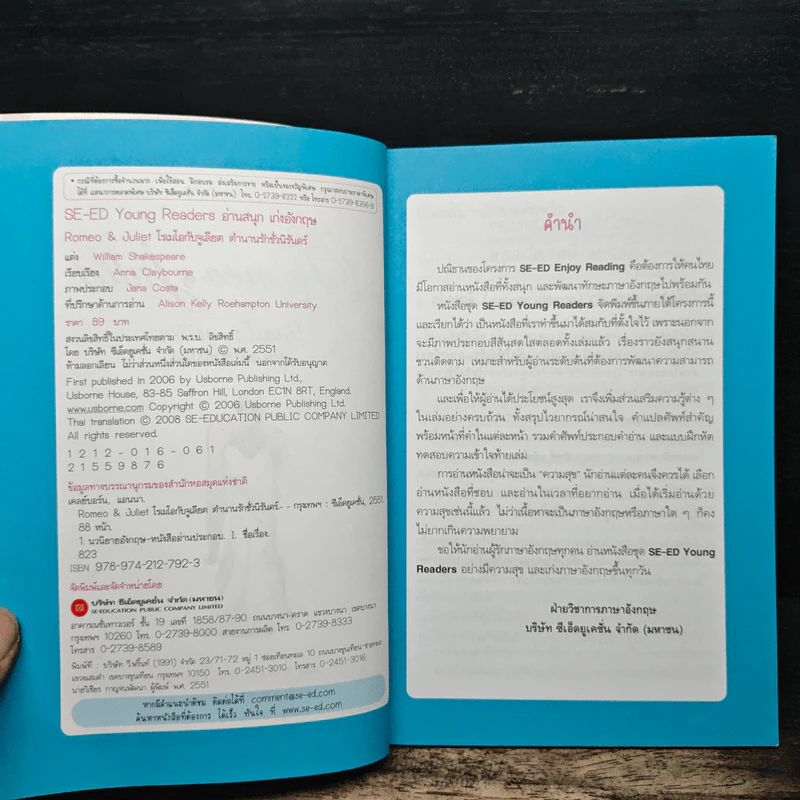 * กรณีที่ต้องการซื้อจำนวนมาก เพื่อใช้สอน ฝึกอบรม ส่งเสริมการขาย หรือเป็นของขวัญพิเศษ กรุณาสอบถามราคาพิเศษ
ได้ที่ แผนกการตลาดพิเศษ บริษัท ซีเอ็ดยูเคชั่น จำกัด (มหาชน) โทร. 0-2739-8222 หรือ โทรสาร 0-2739-8356-9
SE-ED Young Readers อ่านสนุก เก่งอังกฤษ
Romeo & Juliet โรเมโอกับจูเลียต ตำนานรักชั่วนิรันดร์
แต่ง William Shakespeare
เรียบเรียง Anna Claybourne
ภาพประกอบ Jana Costa
ที่ปรึกษาด้านการอ่าน Alison Kelly Roehampton University
ราคา 89 บาท
สงวนลิขสิทธิ์ในประเทศไทยตาม พ.ร.บ. ลิขสิทธิ์
โดย บริษัท ซีเอ็ดยูเคชั่น จำกัด (มหาชน) © พ.ศ. 2551
ห้ามลอกเลียน ไม่ว่าส่วนหนึ่งส่วนใดของหนังสือเล่มนี้ นอกจากได้รับอนุญาต
First published in 2006 by Usborne Publishing Ltd.,
Usborne House, 83-85 Saffron Hill, London EC1N 8RT, England.
www.usborne.com Copyright © 2006 Usborne Publishing Ltd.
Thai translation © 2008 SE-EDUCATION PUBLIC COMPANY LIMITED
All rights reserved.
1212-016-061
21559876
ข้อมูลทางบรรณานุกรมของสำนักหอสมุดแห่งชาติ
เคลย์บอร์น, แอนนา.
Romeo & Juliet โรเมโอกับจูเลียต ตำนานรักชั่วนิรันดร์.- - กรุงเทพฯ : ซีเอ็ดยูเคชั่น, 2551.
88 หน้า.
1. นวนิยายอังกฤษ-หนังสืออ่านประกอบ. I. ชื่อเรื่อง.
823
ISBN 978-974-212-792-3
จัดพิมพ์และจัดจำหน่ายโดย
บริษัท ซีเอ็ดยูเคชั่น จำกัด (มหาชน)
SE-EDUCATION PUBLIC COMPANY LIMITED
อาคารเนชั่นทาวเวอร์ ชั้น 19 เลขที่ 1858/87-90 ถนนบางนา-ตราด แขวงบางนา เขตบางนา
กรุงเทพฯ 10260 โทร. 0-2739-8000 สายงานการผลิต โทร. 0-2739-8333
โทรสาร 0-2739-8589
พิมพ์ที่ : บริษัท วี.พริ้นท์ (1991) จำกัด 23/71-72 หมู่ 1 ซอยเทียนทะเล 10 ถนนบางขุนเทียน-ชายทะเล
แขวงแสมดำ เขตบางขุนเทียน กรุงเทพฯ 10150 โทร. 0-2451-3010 โทรสาร 0-2451-3016
นายวิเชียร กาญจนพัฒนา ผู้พิมพ์ พ.ศ. 2551
หากมีคำแนะนำติชม ติดต่อได้ที่ comment@se-ed.com
ค้นหาหนังสือที่ต้องการ ได้เร็ว ทันใจ ที่ www.se-ed.com
คำนำ
ปณิธานของโครงการ SE-ED Enjoy Reading คือต้องการให้คนไทย
มีโอกาสอ่านหนังสือที่ทั้งสนุก และพัฒนาทักษะภาษาอังกฤษไปพร้อมกัน
หนังสือชุด SE-ED Young Readers จัดพิมพ์ขึ้นภายใต้โครงการนี้
และเรียกได้ว่า เป็นหนังสือที่เราทำขึ้นมาได้สมกับที่ตั้งใจไว้ เพราะนอกจาก
จะมีภาพประกอบสีสันสดใสตลอดทั้งเล่มแล้ว เรื่องราวยังสนุกสนาน
ชวนติดตาม เหมาะสำหรับผู้อ่านระดับต้นที่ต้องการพัฒนาความสามารถ
ด้านภาษาอังกฤษ
และเพื่อให้ผู้อ่านได้ประโยชน์สูงสุด เราจึงเพิ่มส่วนเสริมความรู้ต่าง ๆ
ในเล่มอย่างครบถ้วน ทั้งสรุปไวยากรณ์น่าสนใจ คำแปลศัพท์สำคัญ
พร้อมหน้าที่คำในแต่ละหน้า รวมคำศัพท์ประกอบคำอ่าน และแบบฝึกหัด
ทดสอบความเข้าใจท้ายเล่ม
การอ่านหนังสือน่าจะเป็น "ความสุข" นักอ่านแต่ละคนจึงควรได้ เลือก
อ่านหนังสือที่ชอบ และอ่านในเวลาที่อยากอ่าน เมื่อได้เริ่มอ่านด้วย
ความสุขเช่นนี้แล้ว ไม่ว่าเนื้อหาจะเป็นภาษาอังกฤษหรือภาษาใด ๆ ก็คง
ไม่ยากเกินความพยายาม
ขอให้นักอ่านผู้รักภาษาอังกฤษทุกคน อ่านหนังสือชุด SE-ED Young
Readers อย่างมีความสุข และเก่งภาษาอังกฤษขึ้นทุกวัน
ฝ่ายวิชาการภาษาอังกฤษ
บริษัท ซีเอ็ดยูเคชั่น จำกัด (มหาชน)